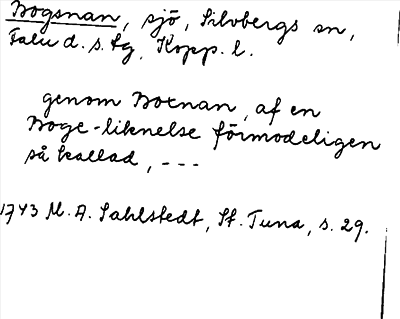 Bogsnan, sjö, Silvbergs sn,
Falu d. s. tg, Kopp. l.
genom Botnan, af en
Boge-liknelse förmodeligen
så kallad, ---
1743 M. A. Sahlstedt, St. Tuna, s. 29.